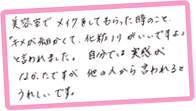 美容室で メイクをしてもらった時のこと、
"キメが細かくて、化粧ノリがいいですよ"
と言われました。自分では実感が
なかったですが 他の人から言われると
うれしいです。